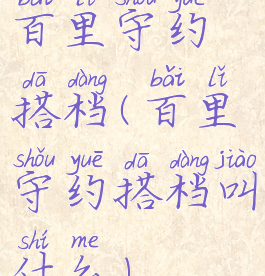 bǎi lǐ shǒu yuē
百里守约
dā dàng bǎi lǐ
搭档(百里
shǒu yuē dā dàng jiào
守约搭档叫
shí me
什么)